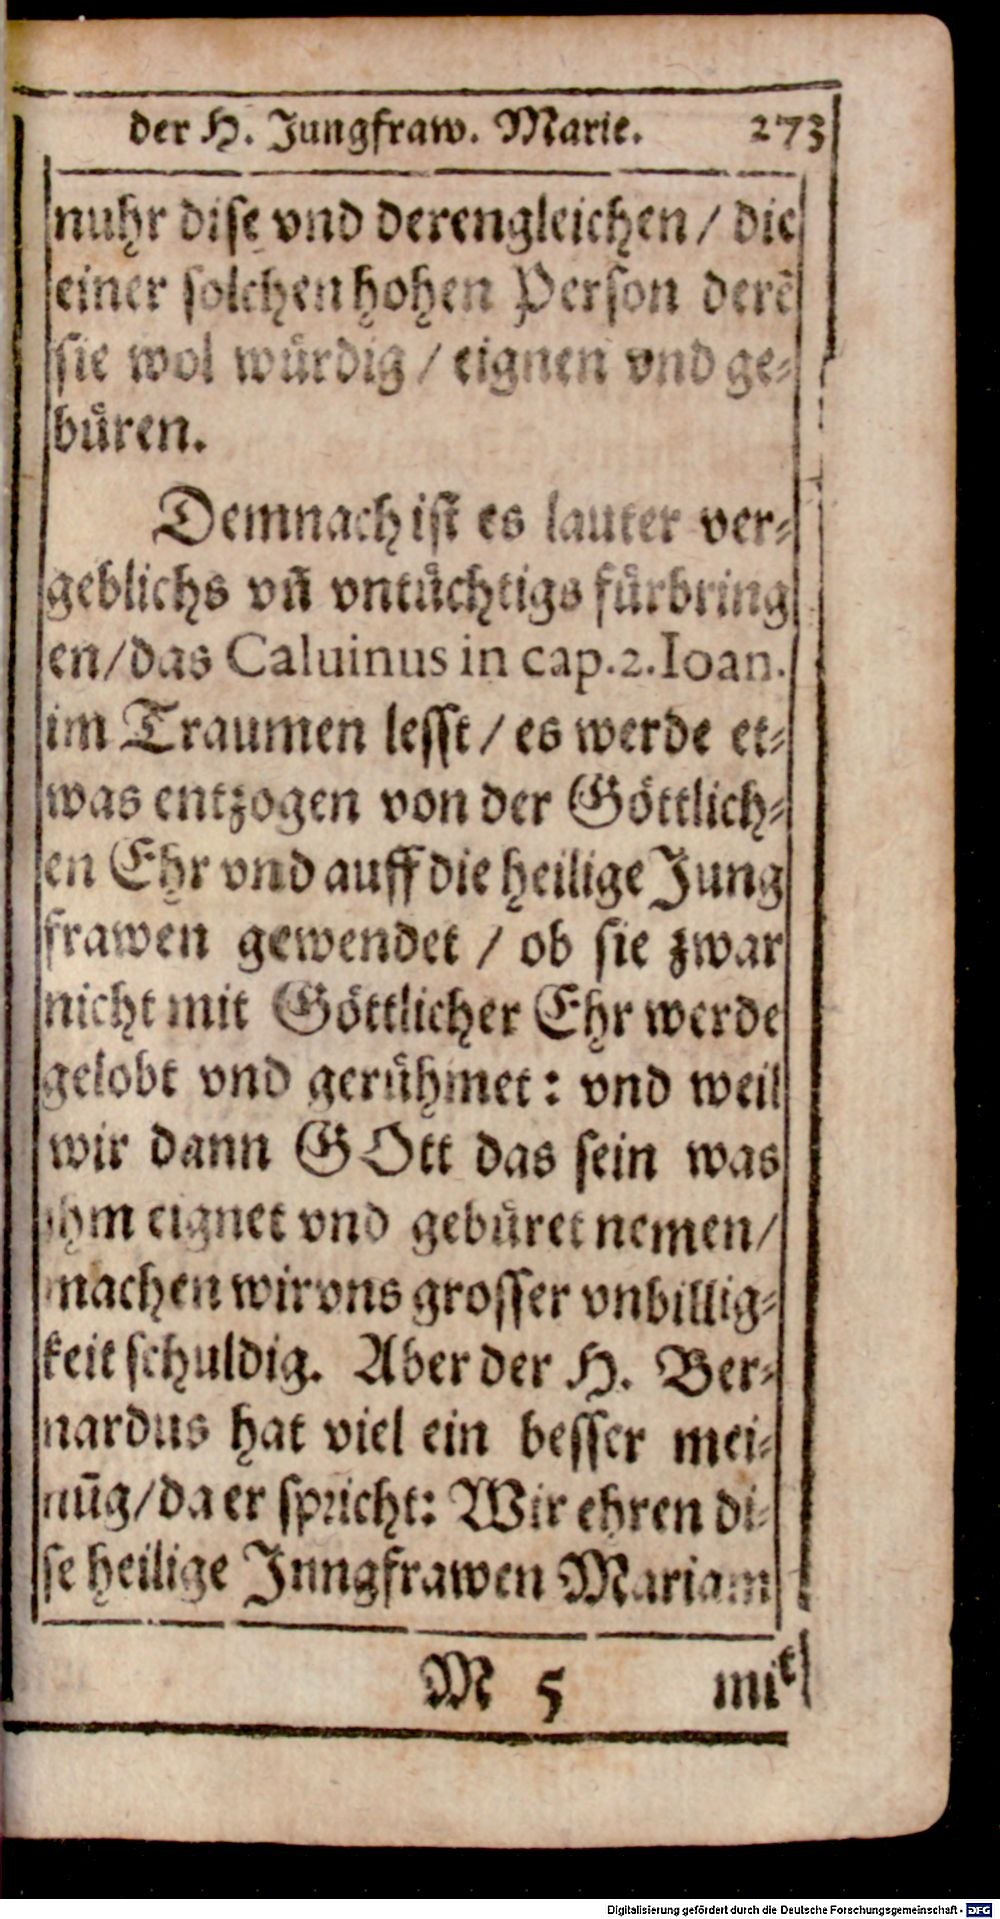 der H. Jungfraw. Marie. 273
nuhr dise vnd derengleichen / die
einer solchen hohen Person derẽ
sie wol wuͤrdig / eignen vnd ge-
buͤren.
Demnach ist es lauter ver-
geblichs vñ vntuͤchtigs fuͤrbring
en/das Caluinus in cap.2.Ioan.
im Traumen lesst / es werde et-
was entzogen von der Goͤttlich-
en Ehr vnd auff die heilige Jung
frawen gewendet / ob sie zwar
nicht mit Goͤttlicher Ehr werde
gelobt vnd geruͤhmet: vnd weil
wir dann GOtt das sein was
ihm eignet vnd gebuͤret nemen/
machen wir vns grosser vnbillig-
keit schuldig. Aber der H. Ber-
nardus hat viel ein besser mei-
nũg/da er spricht: Wir ehren di-
se heilige Jnngfrawen Mariam
M 5 mit
Digitalisierung gefördert durch die Deutsche Forschungsgemeinschaft - DFG